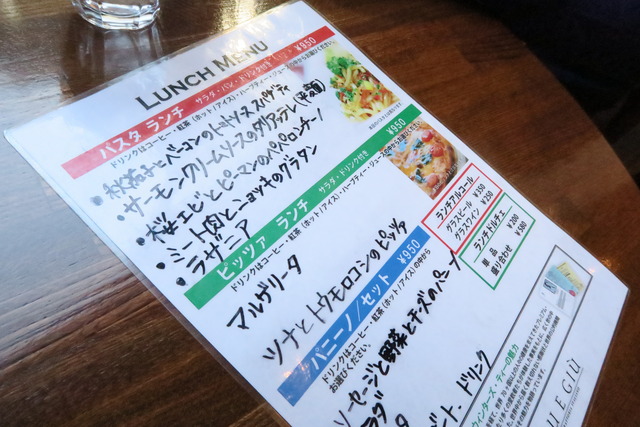 LUNCH MENU
パスタ ランチ サラダ・パン・ドリンク付き ¥950
ドリンクはコーヒー・紅茶（ホット/アイス）・ハーブティー・ジュースの中からお選びください。
・秋茄子とベーコンのトマトソーススパゲティ
・サーモンクリームソースのタリアッテレ(平麺)
・桜エビとピーマンのペペロンチーノ
・ミート肉とニョッキのグラタン
・ラザニア
ピッツァ ランチ サラダ・ドリンク付き ¥950
ドリンクはコーヒー・紅茶（ホット/アイス）・ハーブティー・ジュースの中からお選びください。
マルゲリータ
ツナとトウモロコシのピッツァ
パニーノ/セット ¥950
ドリンクはコーヒー・紅茶（ホット/アイス）の中から
お選びください。
ソーセージと野菜とチーズのパニーノ
ランチアルコール
グラスビール ¥350
グラスワイン ¥250
ランチドルチェ
単品 ¥200
盛り合わせ ¥380
ート、ドリンク
ウィンターズ・ティーの魅力
IL EGIÙ